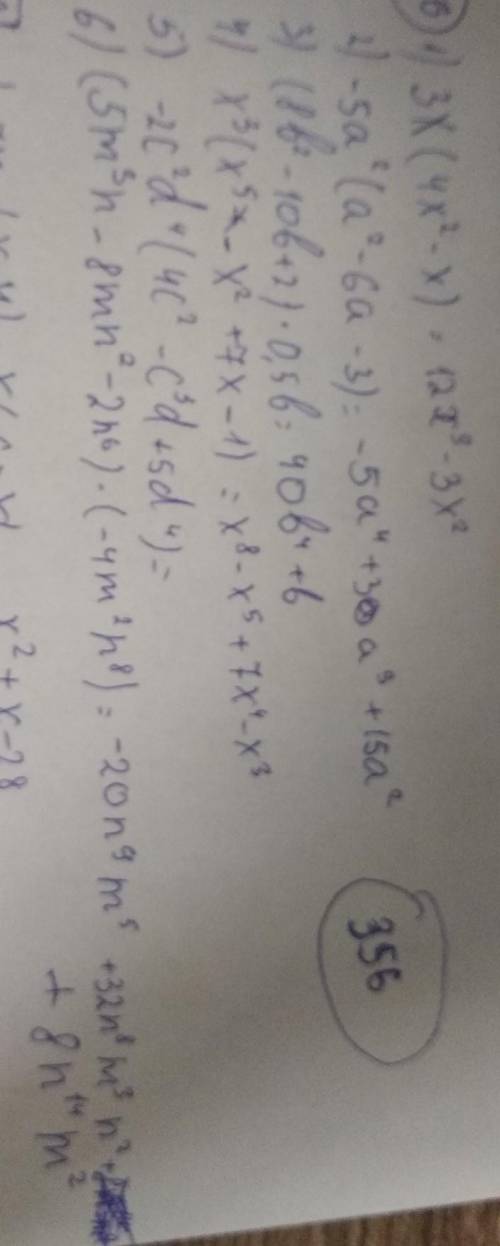 1) 3x(4x² - x) = 12x³ - 3x²
2) -5a²(a² - 6a - 3) = -5a⁴ + 30a³ + 15a²
3) (8b² - 10b + 2) · 0,5b = 40b⁴ + b
4) x³(x⁵ - x² + 7x - 1) = x⁸ - x⁵ + 7x⁴ - x³
5) -2c²d⁴(4c² - c³d + 5d⁴) =
6) (5m³n - 8mn² - 2n⁶) · (-4m²n⁸) = -20n⁹m⁵ + 32n⁸m³n² +
+ 8n¹⁴m²
356
x² + x - 28